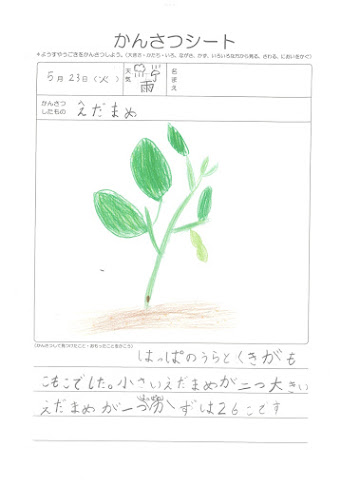 かんさつシート
＊ようすやうごきをかんさつしよう。(大きさ・かたち・いろ、ながさ、かず、いろいろな方から見る、さわる、においをかぐ)
5月23日(火)
天気
雨
名まえ
かんさつしたもの
えだまめ
(かんさつして気づいたこと・おもったことをかこう)
はっぱのうらとくきがも
こもこでした。小さいえだまめが二つ大きい
えだまめが一つ
ずは26こです